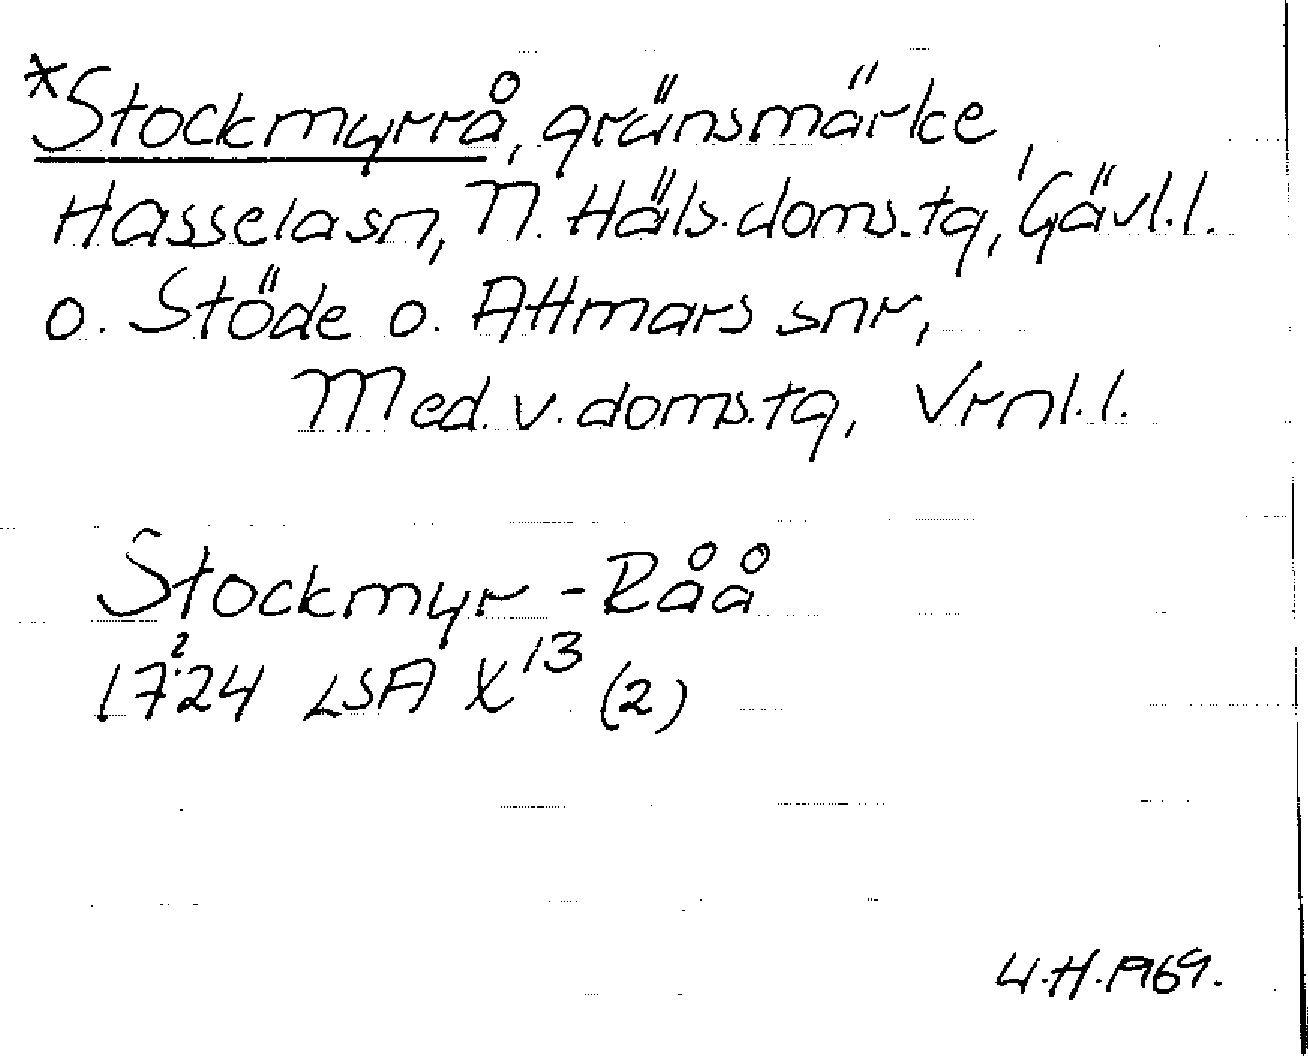 *Stockmyrrå, gränsmärke,
Hasselasn, N. Häls. doms.tg, Gävl.l.
o. Stöde o. Attmars snr,
Med. v. doms.tg, Vrnl.l.
Stockmyr-Råå
1724 LSA X13 (2)
U.H. 1969.